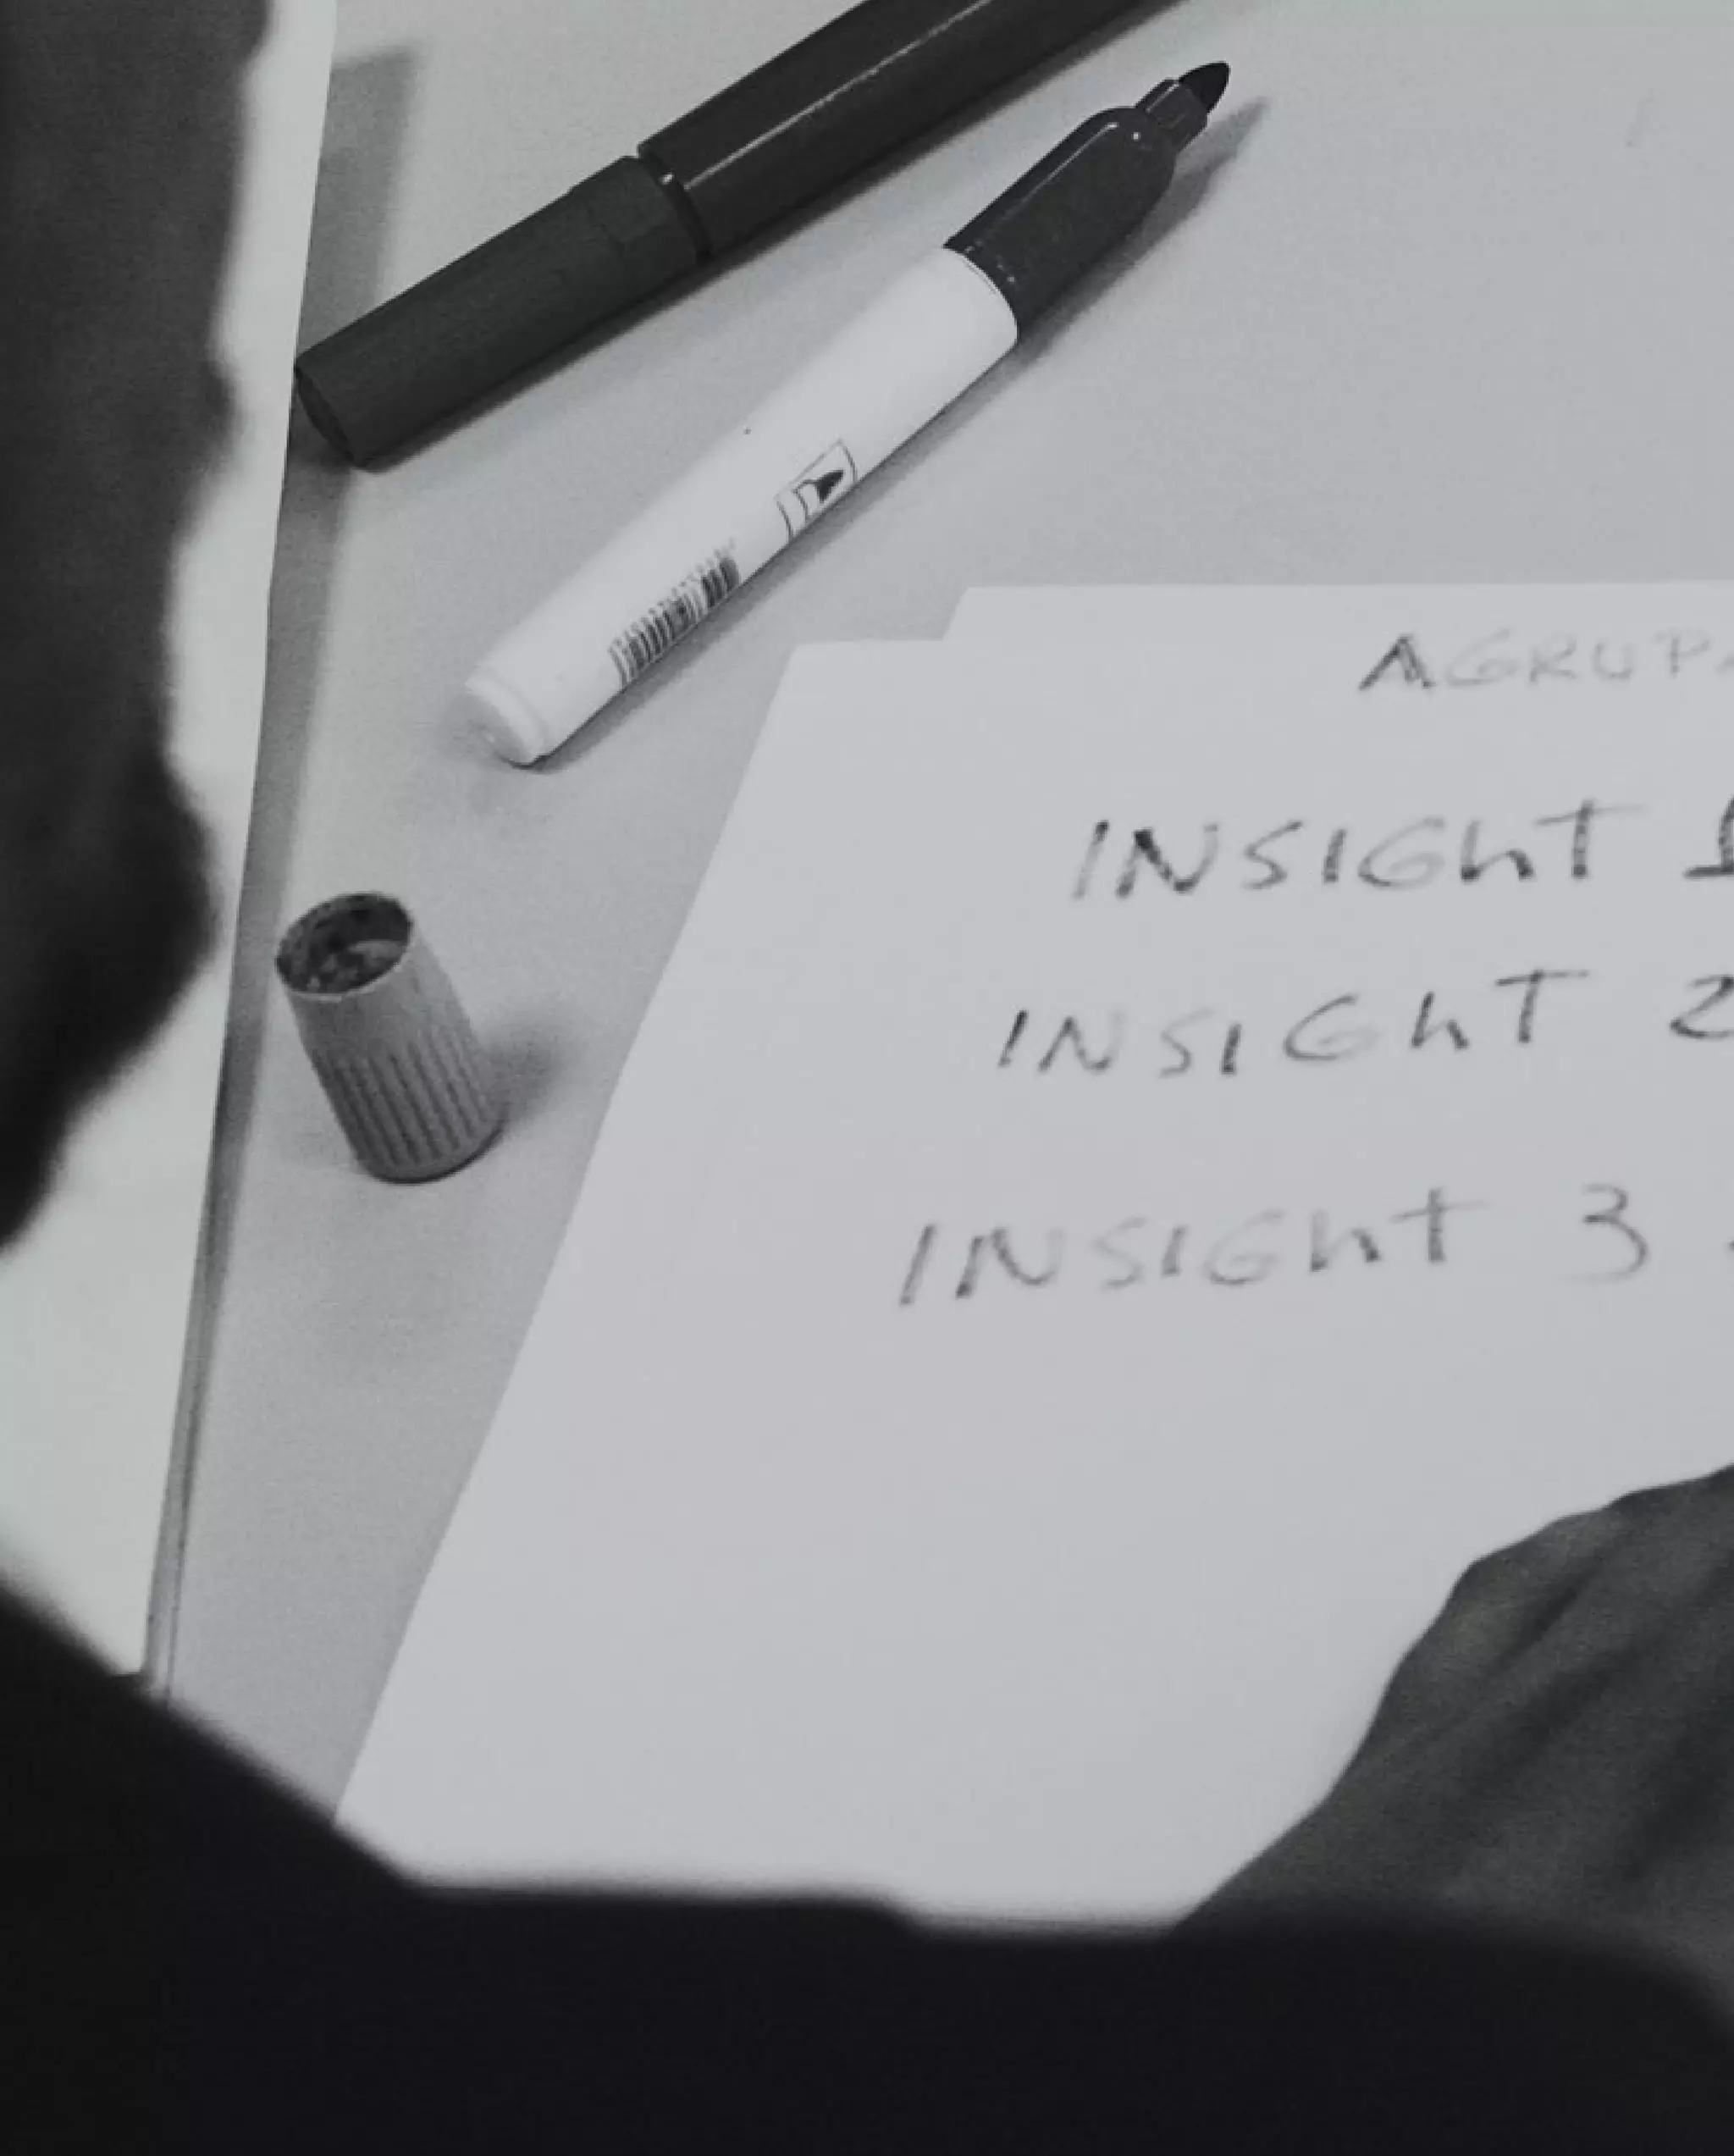 AGRUPA
INSIGHT 1
INSIGHT 2
INSIGHT 3